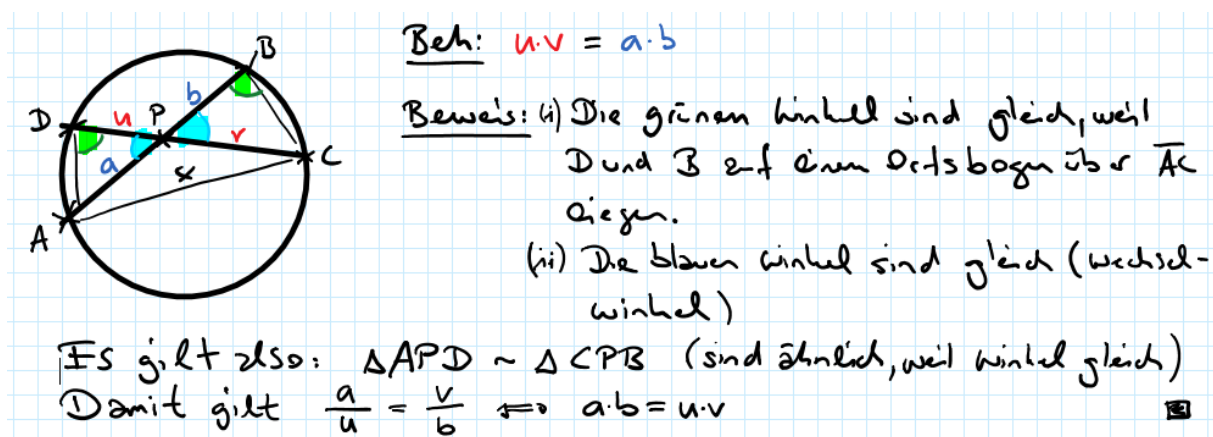 Beh: u·v = a·b
B
D
u
P
b
v
a
α
C
A
Beweis: (i) Die grünen Winkel sind gleich, weil
D und B auf einem Ortsbogen über A̅C̅
liegen.
(ii) Die blauen Winkel sind gleich (Wechsel-
winkel)
Es gilt also: ΔAPD ~ ΔCPB (sind ähnlich, weil Winkel gleich)
Damit gilt a/u = v/b ⟺ a·b = u·v